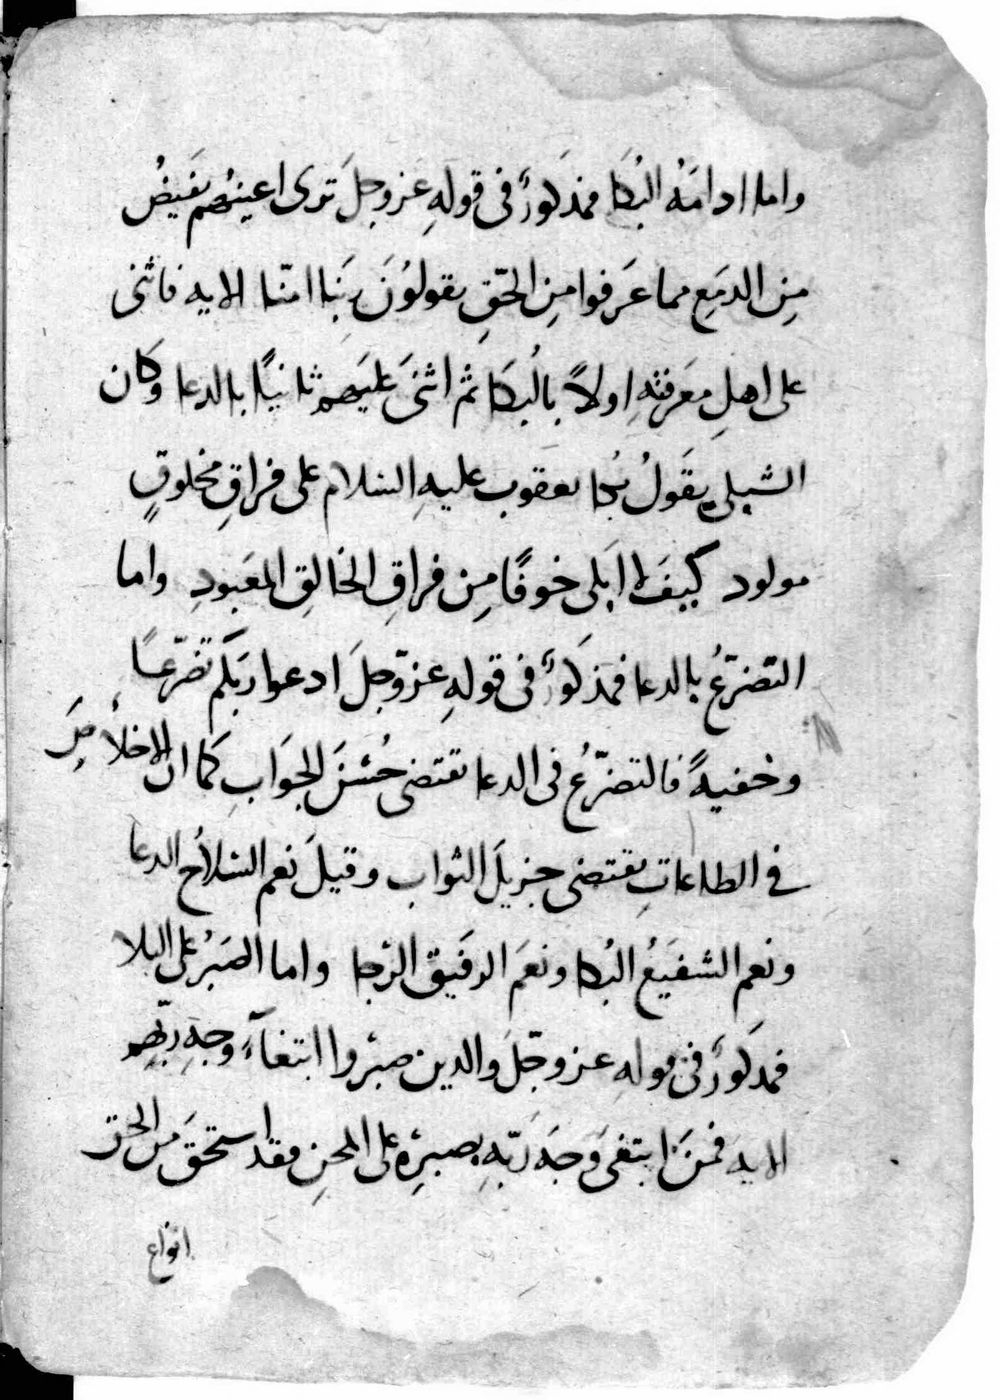 واما ادامَهُ البُكَا فمذكورٌ فى قولهِ عز وجلَ ترى اعينهُم تفيضُ
مِن الدمَعِ مما عَرفوا مِن الحَقِ يقولوُنَ ربَنا امنّا الايه فاثنى
على اهلِ معَرفتهِ اولاً بالُبكَا ثم اثنىَ عليَهم ثانيًا بالدعا وكَان
الشبلى يقَولُ بُكا يعقوب عليهِ السلام على فراقِ مخلوقٍ
مولود كيفَ لا ابَكى خوفًا مِن فراقِ الخالقِ المعَبودِ واما
التضرّعُ بالدعا فمذكورٌ فى قولهِ عزّوجلَ ادعوا ربَكم تضرّعاً
وخفيةً فالتضرّعُ فى الدعا تقتضى حُسْنَ الجوَابِ كمَا ان الاخلاصَ
فى الطاعاتِ يقتضى جزيلَ الثواب وقيلَ نعم السّلاحُ الدعا
ونعم الشفيَعُ البُكا ونعَم الرفَيق الرّجا واما الصَبرُ على البلا
فمذكورٌ فى قولهِ عز وجّلَ والذين صبرُوا ابتغاَءَ وجهِ ربّهِم
الايه فمَنَ ابتغىَ وَجهَ رَبّهِ بصبرِه على المحنِ فقد استحَقَ مَن الحق
انواع